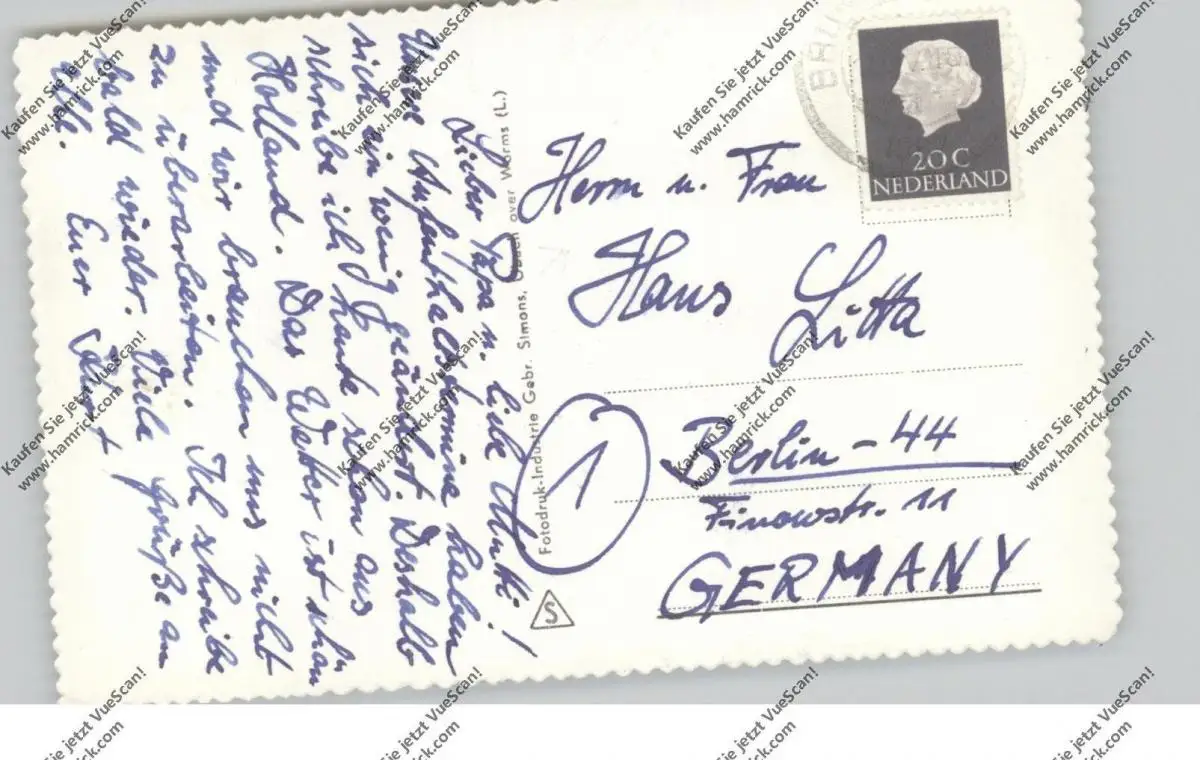 Lieber Papa u. liebe Mutti!
Unsere Aufenthaltstermine haben
sich ein wenig geändert. Deshalb
schreibe ich heute schon aus
Holland. Das Wetter ist schön
und wir brauchen uns nicht
zu überarbeiten. Ich schreibe
bald wieder. Viele Grüße an
alle. Euer
Fotodruk-Industrie Gebr. Simons, Ubach over Worms (L.)
S
1
20C
NEDERLAND
Herrn u. Frau
Hans Litta
Berlin-44
Finowstr. 11
GERMANY
Kaufen Sie jetzt VueScan!
www.hamrick.com